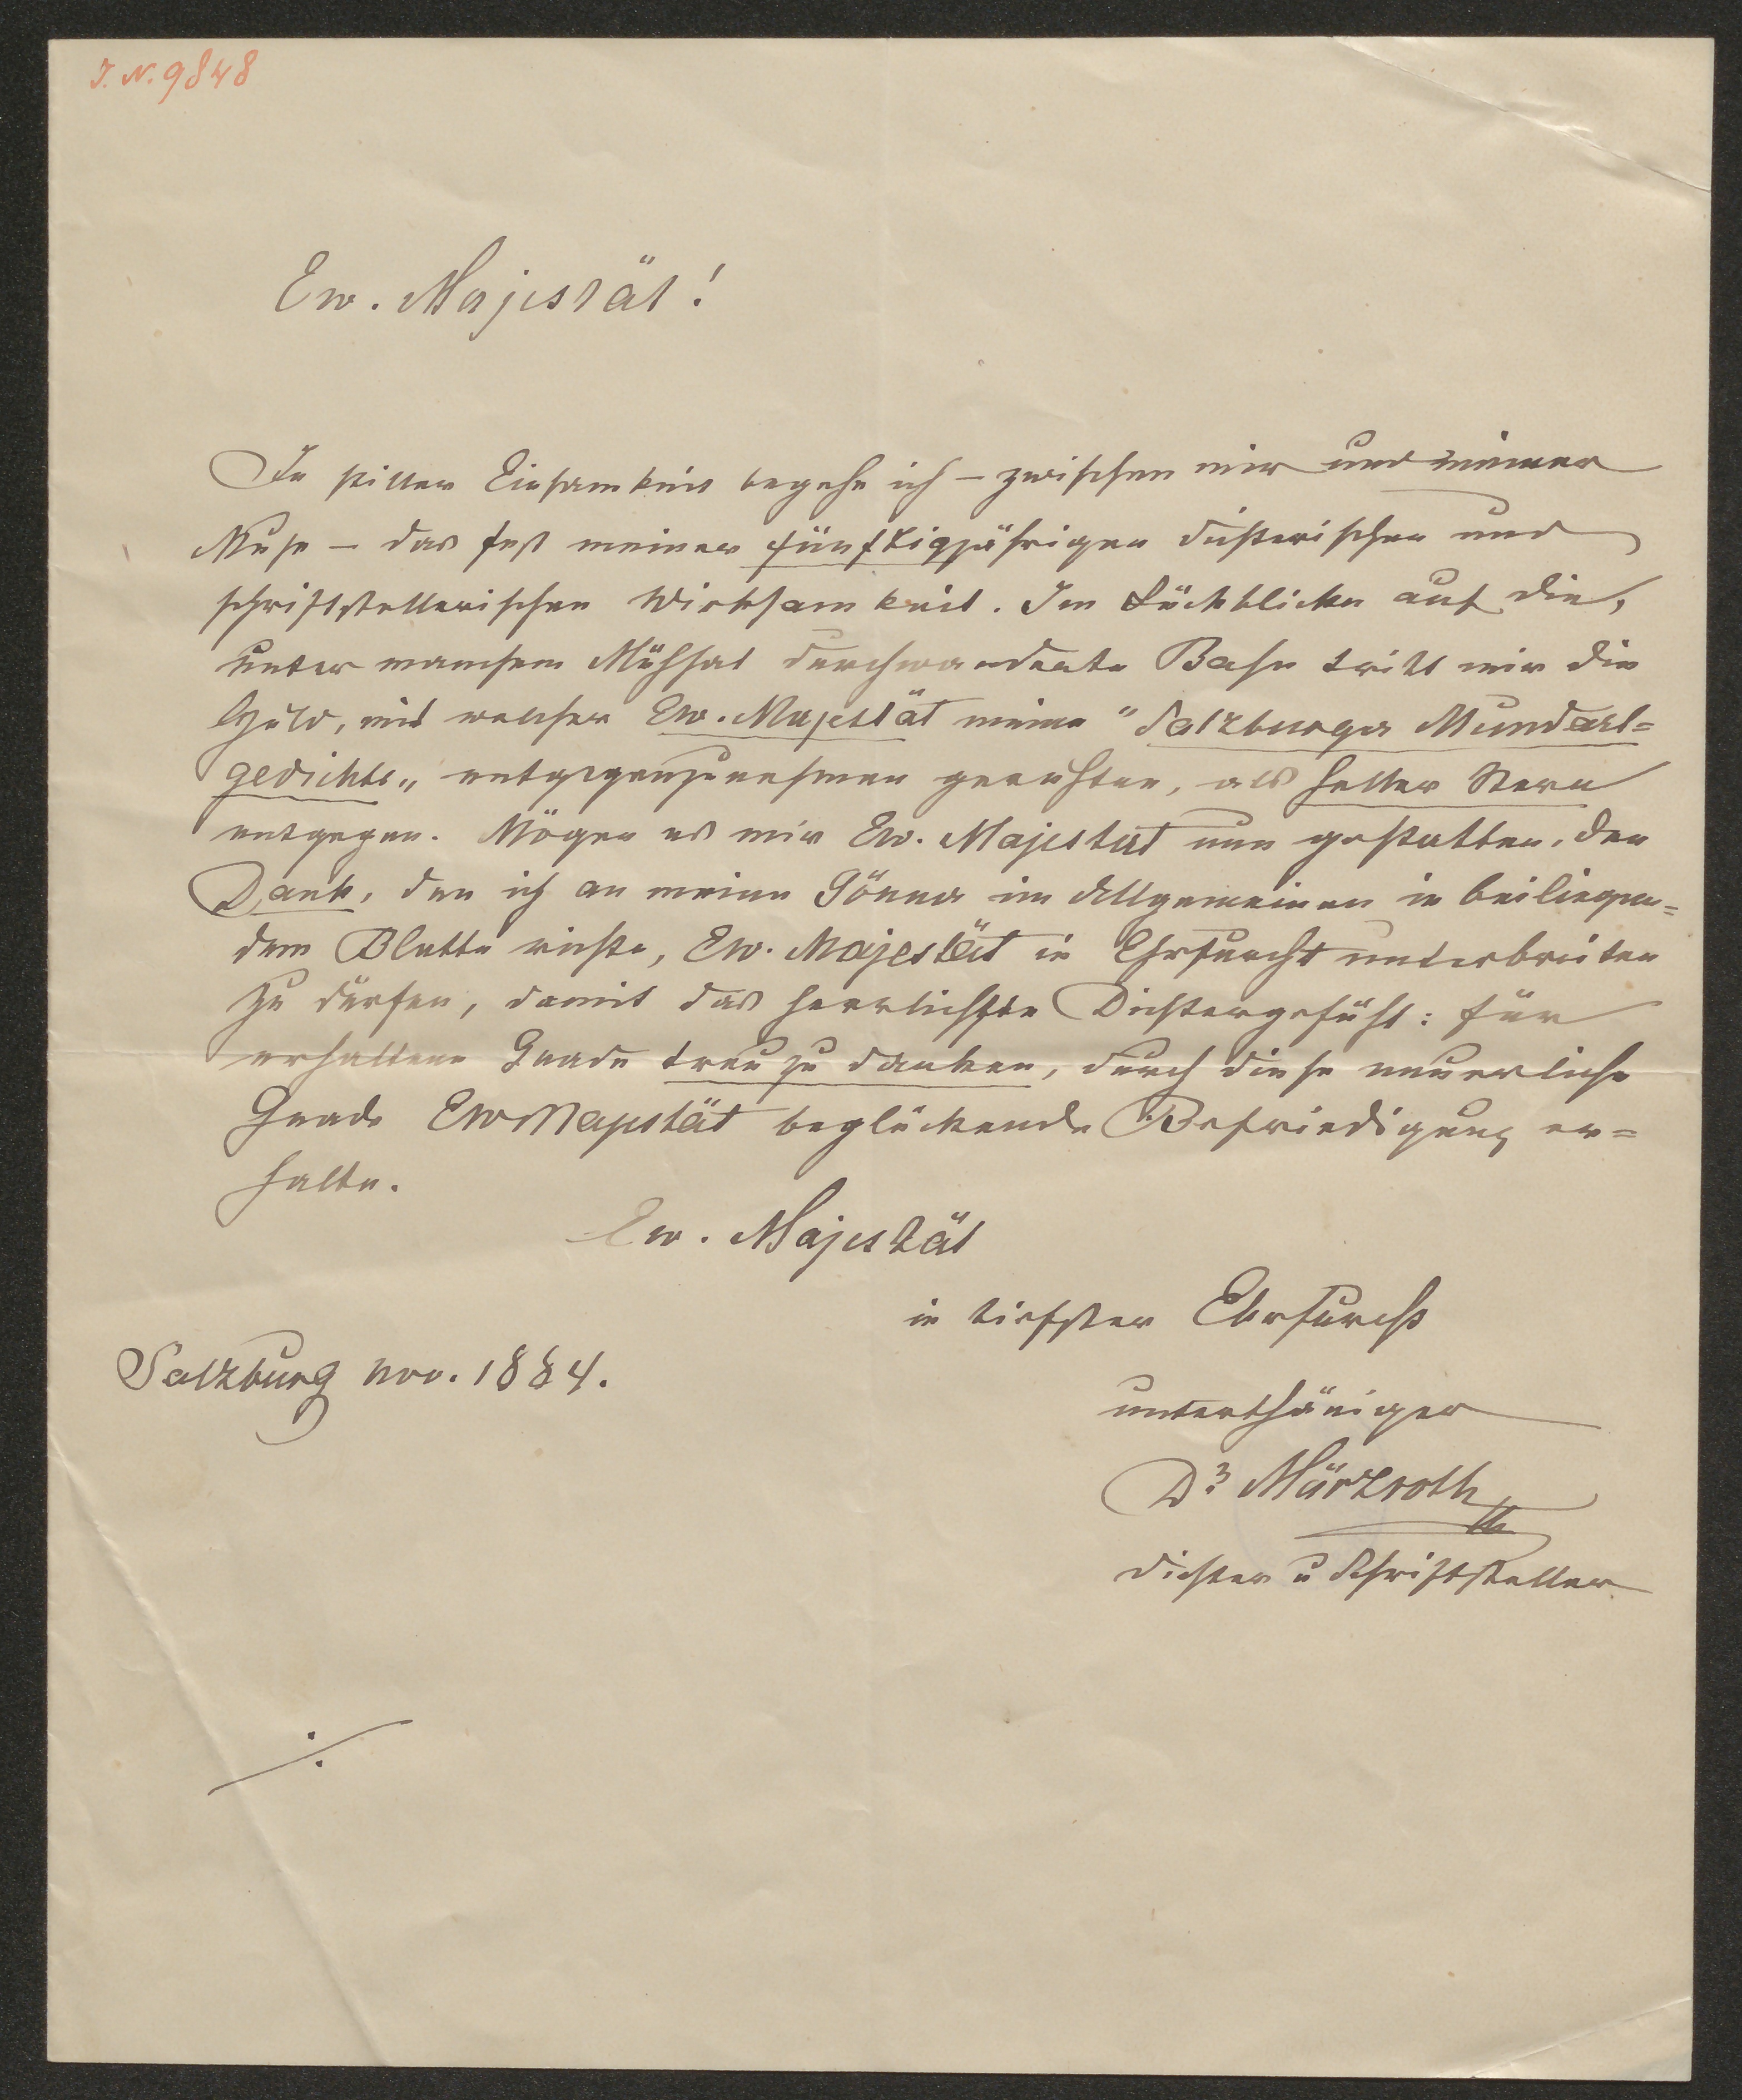 J. N. 9848
Ew. Majestät!
In stiller Einsamkeit begehe ich – zwischen mir und meiner
Muse – das Fest meiner fünfzigjährigen dichterischen und
schriftstellerischen Wirksamkeit. Im Rückblicke auf die,
unter manchem Mühsal durchwanderte Bahn tritt mir die
Huld, mit welcher Ew. Majestät meine "Salzburger Mundart=
gedichte„ entgegenzunehmen geruhten, als heller Stern
entgegen. Mögen es mir Ew. Majestät nun gestatten, den
Dank, den ich an meine Gönner im Allgemeinen in beiliegen=
dem Blatte richte, Ew. Majestät in Ehrfurcht unterbreiten
zu dürfen, damit das herrlichste Dichtergefühl: für
erhaltene Gnade treu zu danken, durch diese neuerliche
Gnade Ew Majestät beglückende Befriedigung er=
halte.
Ew. Majestät
in tiefster Ehrfurcht
Salzburg Nov. 1884.
unterthäniger
Dr Märzroth
Dichter u Schriftsteller
./.